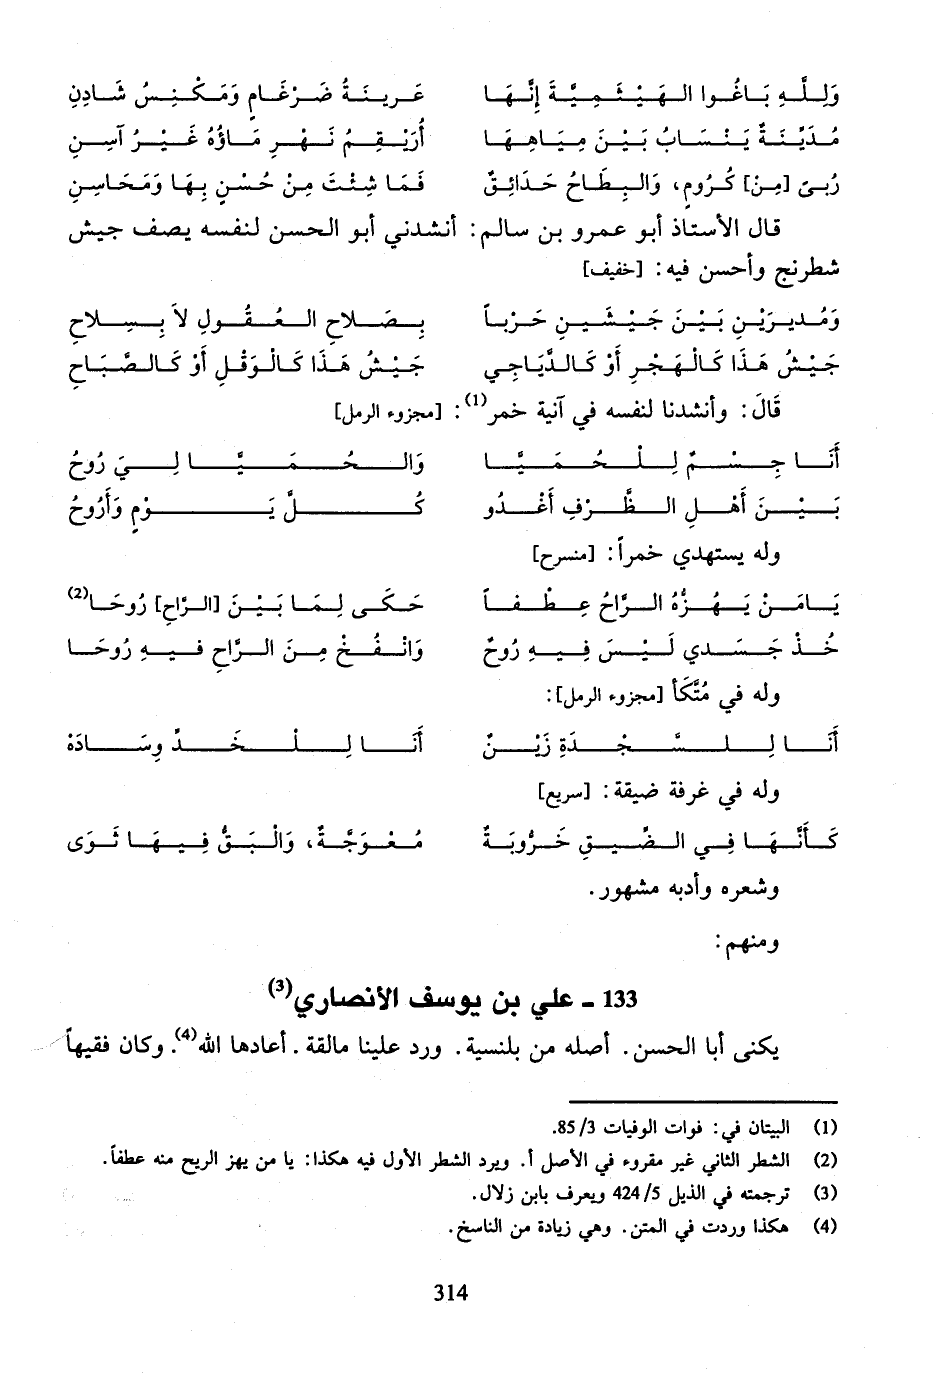 وَلِلَّهِ بَاغُوا الهَيْثَمِيَّةَ إِنَّهَا عَرِينَةُ ضَرْغَامٍ وَمَكْنِسُ شَادِنِ
مُدَيْنَةٌ يَنْسَابُ بَيْنَ مِيَاهِهَا أُرَيْقِمُ نَهْرٍ مَاؤُهُ غَيْرُ آسِنِ
رُبىً [مِنْ] كُرُومٍ، وَالبِطَاحُ حَدَائِقٌ فَمَا شِئْتَ مِنْ حُسْنٍ بِهَا وَمَحَاسِنِ
قال الأستاذ أبو عمرو بن سالم: أنشدني أبو الحسن لنفسه يصف جيش
شطرنج وأحسن فيه: [خفيف]
وَمُديرَيْنِ بَيْنَ جَيْشَيـنِ حَرْباً بِصَلاحِ العُقُولِ لاَ بِسِلاحِ
جَيْشُ هَذَا كَالْهَجْرِ أَوْ كَالدَّيَاجِي جَيْشُ هَذَا كَالْوَصْلِ أَوْ كَالصَّبَاحِ
قَالَ: وأنشدنا لنفسه في آنية خمر(1): [مجزوء الرمل]
أَنَا جِسْمٌ لِلْحُمَيَّا وَالحُمَيَّا لِيَ رُوحُ
بَيْنَ أَهْلِ الظَّرْفِ أَغْدُو كُلَّ يَوْمٍ وَأَرُوحُ
وله يستهدي خمراً: [منسرح]
يَامَنْ يَهُزُّهُ الرَّاحُ عِطْفاً حَكَى لِمَا بَيْنَ [الرَّاحِ] رُوحَا(2)
خُذْ جَسَدي لَيْسَ فِيهِ رُوحٌ وَانْفُخْ مِنَ الرَّاحِ فيهِ رُوحَا
وله في مُتَّكَأ [مجزوء الرمل]:
أَنَا لِلسَّجْدَةِ زَيْنٌ أَنَا لِلْخَدِّ وِسَادَهْ
وله في غرفة ضيقة: [سريع]
كَأَنَّهَا فِي الضِّيقِ خَرُّوبَةٌ مُعْوَجَّةٌ، وَالْبَقُّ فِيهَا ثَوَى
وشعره وأدبه مشهور.
ومنهم:
133 ـ علي بن يوسف الأنصاري(3)
يكنى أبا الحسن. أصله من بلنسية. ورد علينا مالقة. أعادها الله(4). وكان فقيهاً
(1) البيتان في: فوات الوفيات 3/85.
(2) الشطر الثاني غير مقروء في الأصل أ. ويرد الشطر الأول فيه هكذا: يا من يهز الريح منه عطفاً.
(3) ترجمته في الذيل 5/424 ويعرف بابن زلال.
(4) هكذا وردت في المتن. وهي زيادة من الناسخ.
314